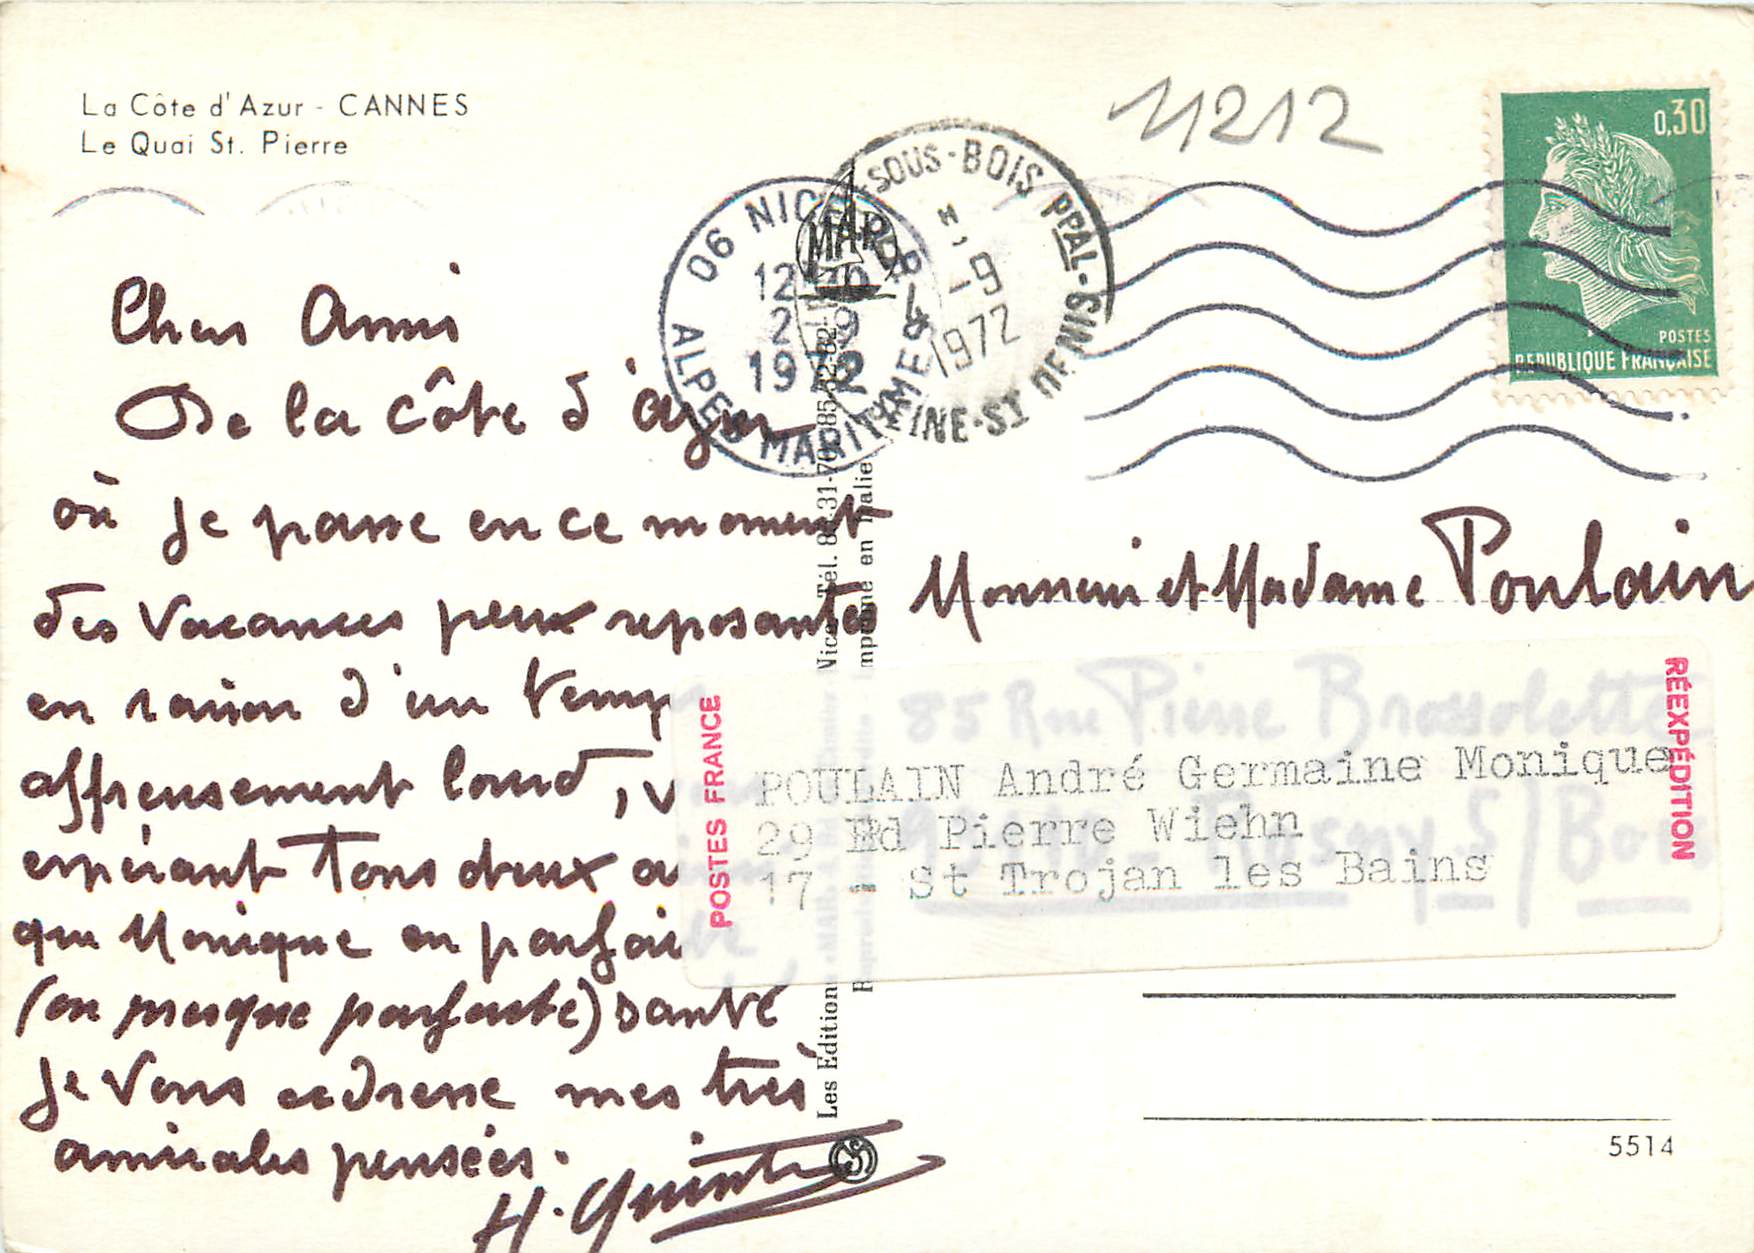 La Côte d'Azur - CANNES
Le Quai St. Pierre
11212
0,30
POSTES
REPUBLIQUE FRANÇAISE
06 NICE
ALPES MARITIMES
1972
SOUS-BOIS PPAL
SEINE-ST DENIS
1972
MAR
Chers Amis
De la côte d'azur
où je passe en ce moment
des vacances peux reposantes
en raison d'un temps
affreusement lourd, v
espérant tous deux a
que Monique en parfai
(ou presque parfaite) santé
je vous adresse mes très
amicales pensées.
H. Quint
Monsieur et Madame Poulain
85 Rue Pierre Brossolette
Rosny S/ Bois
POSTES FRANCE
RÉEXPÉDITION
POULAIN André Germaine Monique
29 Bd Pierre Wiehn
17 - St Trojan les Bains
Les Editions «MAR» Nice - Tél. 85-31-70
Imprimé en Italie
5514